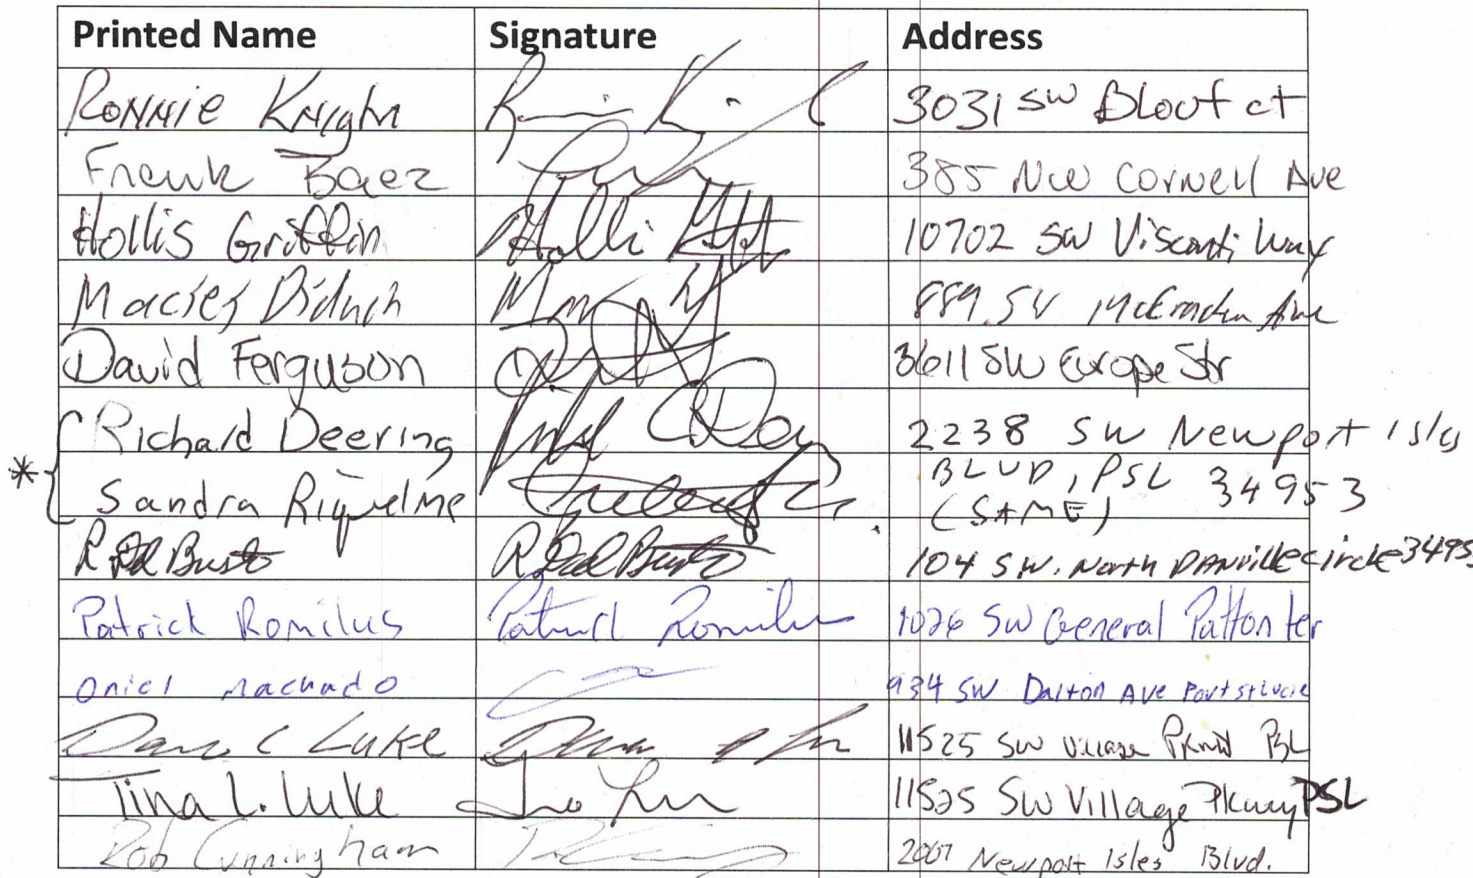 Printed Name Signature Address
Ronnie Knight 3031 SW Blouf ct
Frank Baez 385 NW Cornell Ave
Hollis Griffin Holli 10702 SW Visconti Way
Maciej Biduch 889 SW McCracken Ave
David Ferguson 3611 SW Europe Str
Richard Deering 2238 SW Newport Isles
* BLVD, PSL 34953
Sandra Riquelme (SAME)
104 SW. North Danville Circle 3495
Patrick Romilus Patrick Romilus 1026 SW General Patton ter
Oniel Machado 934 SW Dalton Ave Port st Lucie
C Luke 11525 SW Village
Tina L. Luke 11525 SW Village Pkwy PSL
Rob Cunningham 2007 Newport Isles Blvd.